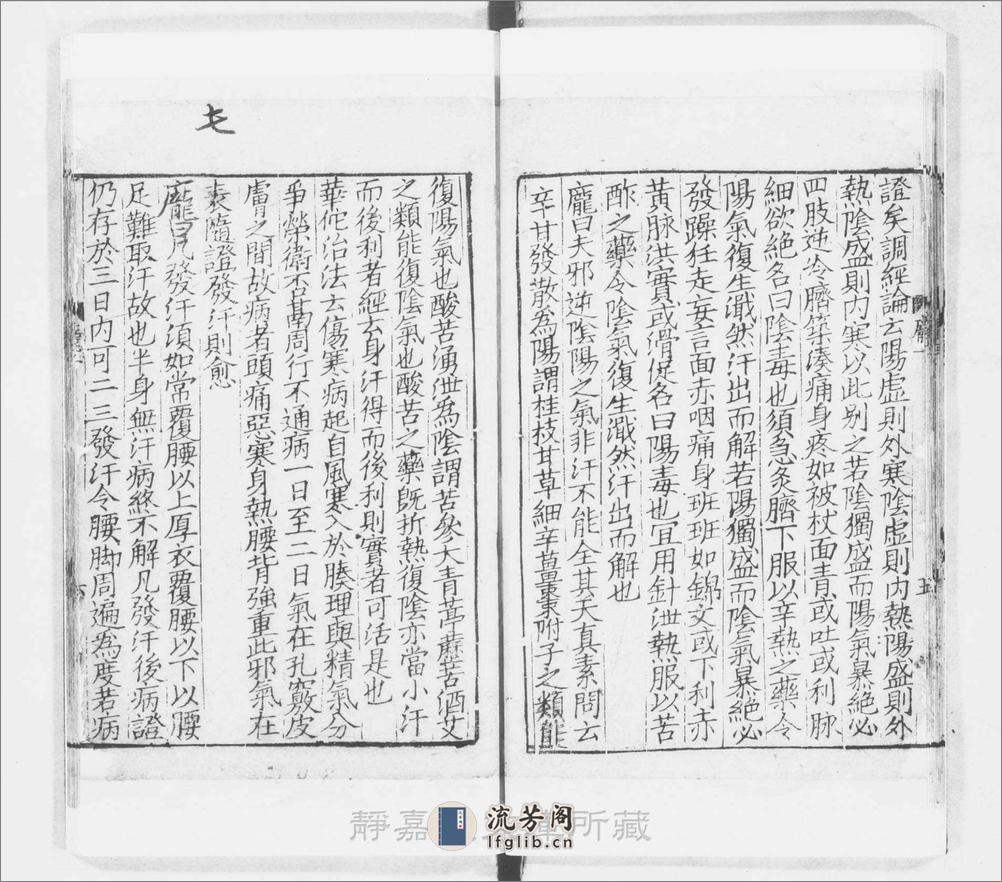 證矣調經論云陽虛則外寒陰虛則内熱陽盛則外
熱陰盛則内寒以此别之若陰獨盛而陽氣暴絶必
四肢逆冷臍築湊痛身疼如被杖面青或吐或利脉
細欲絶名曰陰毒也須急灸臍下服以辛熱之藥令
陽氣復生濈然汗出而解若陽獨盛而陰氣暴絶必
發躁狂走妄言面赤咽痛身班班如錦文或下利赤
黄脉洪實或滑促名曰陽毒也宜用針泄熱服以苦
酢之藥令陰氣復生濈然汗出而解也
龐曰夫邪逆陰陽之氣非汗不能全其天真素問云
辛甘發散為陽謂桂枝甘草細辛薑棗附子之類能
復陽氣也酸苦湧泄為陰謂苦參大青葶藶苦酒艾
之類能復陰氣也酸苦之藥既折熱復陰亦當小汗
而後利者經云身汗得而後利則實者可活是也
華佗治法云傷寒病起自風寒入於腠理與精氣分
爭榮衛不否周行不通病一日至二日氣在孔竅皮
膚之間故病者頭痛惡寒身熱腰背強重此邪氣在
表隨證發汗則愈
龐曰凡發汗須如常覆腰以上厚衣覆腰以下以腰
足難取汗故也半身無汗病終不解凡發汗後病證
仍存於三日内可二三發汗令腰脚周遍為度若病
龐一
五
六
靜嘉堂文庫所藏
流芳阁
lfglib.cn